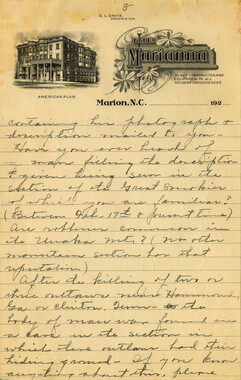 8
S. L. DAVIS,
PROPRIETOR
HOTEL
Marianna
NEWLY CONSTRUCTED AND
EQUIPPED WITH ALL
MODERN CONVENIENCES
AMERICAN PLAN
Marion, N.C. 192
containing his photograph &
description mailed to you -
Have you ever heard of
a man fitting the description
given being seen in the
section of the Great Smokies
of which you are familiar?
(Between Feb. 17th & present time)
Are robberies common in
the Unaka Mts.? (No other
mountain section has that
reputation)
After the killing of two or
three outlaws near Hammond,
Ga. or Clinton, Tenn - the
body of man was found in
a cave in the section in
which these outlaws had their
hiding ground - If you know
anything about this, please